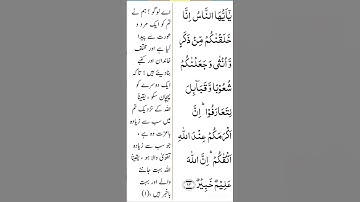 يٰۤاَيُّهَا النَّاسُ اِنَّا
خَلَقْنٰكُمْ مِّنْ ذَكَرٍ
وَّ اُنْثٰى وَ جَعَلْنٰكُمْ
شُعُوْبًا وَّ قَبَآىِٕلَ
لِتَعَارَفُوْاؕ اِنَّ
اَكْرَمَكُمْ عِنْدَ اللّٰهِ
اَتْقٰىكُمْؕ اِنَّ اللّٰهَ
عَلِيْمٌ خَبِيْرٌ ۱۳
اے لوگو ! ہم نے
تم کو ایک مرد و
عورت سے پیدا
کیا ہے اور مختلف
خاندان اور کنبے
بنادیئے ہیں ؛ تاکہ
ایک دوسرے کو
پہچان سکو ، یقیناً
اللہ کے نزدیک تم
میں سب سے زیادہ
باعزت وہ ہے ،
جو سب سے زیادہ
تقویٰ والا ہو ، یقیناً
اللہ بہت جاننے
والے اور بہت
باخبر ہیں ، (۱)